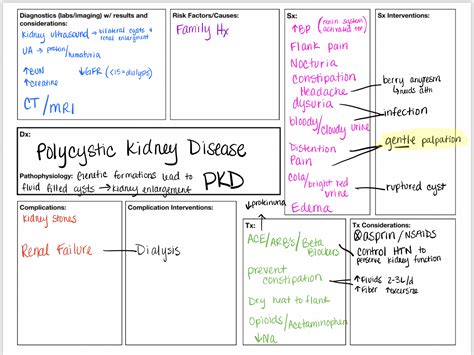 Diagnostics (labs/imaging) w/ results and
considerations:
Kidney ultrasound → bilateral cysts &
renal enlargment
UA → proton/hematuria
↑BUN ↓GFR (<15=dialysis)
↑creatine
CT/MRI
Risk Factors/Causes:
Family Hx
Sx:
↑BP (renin system
activated ter
Flank pain
Nocturia
constipation
Headache
dysuria
bloody/cloudy urine
Distention
Pain
cola/bright red
urine
Edema
Sx Interventions:
berry anyresm
↳needs attn
infection
gentle palpation
ruptured cyst
Dx:
Polycystic Kidney Disease
Pathophysiology: Genetic formations lead to
fluid filled cysts → kidney enlargement PKD
Complications:
Kidney Stones
Renal Failure
Complication Interventions:
Dialysis
↓proteinuria
Tx:
ACE/ARB's/Beta
Blockers
prevent
constipation
Dry heat to flank
Opioids/Acetaminophen
↓Na
Tx Considerations:
asprin/NSAIDS
control HTN to
perserve kidney function
↑Fluids 2-3L/d
↑Fiber ↑excersize